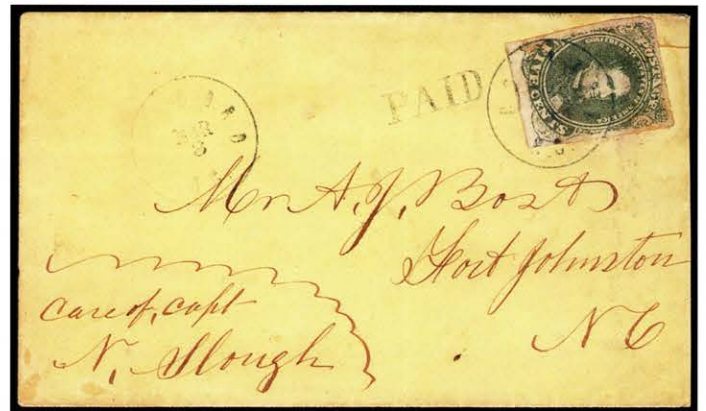 PAID
MAR
Mr A. J. Bost
Fort Johnston
N C
care of, capt
N, Slough